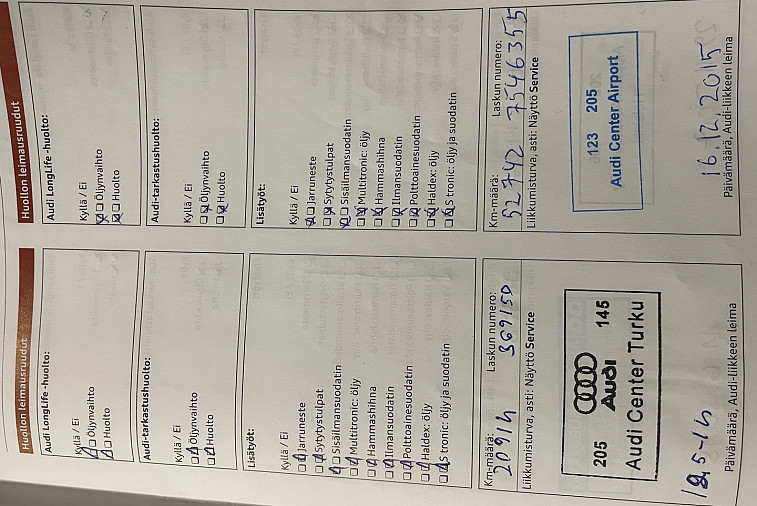 Huollon leimausruudut
Audi LongLife -huolto:
Kyllä / Ei
Öljynvaihto
Huolto
Audi-tarkastushuolto:
Kyllä / Ei
Öljynvaihto
Huolto
Lisätyöt:
Kyllä / Ei
Jarruneste
Sytytystulpat
Sisäilmansuodatin
Multitronic: öljy
Hammashihna
Ilmansuodatin
Polttoainesuodatin
Haldex: öljy
S tronic: öljy ja suodatin
Km-määrä: Laskun numero:
20914 369150
Liikkumisturva, asti: Näyttö Service
Audi
205 145
Audi Center Turku
Päivämäärä, Audi-liikkeen leima
Huollon leimausruudut
Audi LongLife -huolto:
Kyllä / Ei
Öljynvaihto
Huolto
Audi-tarkastushuolto:
Kyllä / Ei
Öljynvaihto
Huolto
Lisätyöt:
Kyllä / Ei
Jarruneste
Sytytystulpat
Sisäilmansuodatin
Multitronic: öljy
Hammashihna
Ilmansuodatin
Polttoainesuodatin
Haldex: öljy
S tronic: öljy ja suodatin
Km-määrä: Laskun numero:
52742 7546355
Liikkumisturva, asti: Näyttö Service
123 205
Audi Center Airport
16.12.2015
Päivämäärä, Audi-liikkeen leima